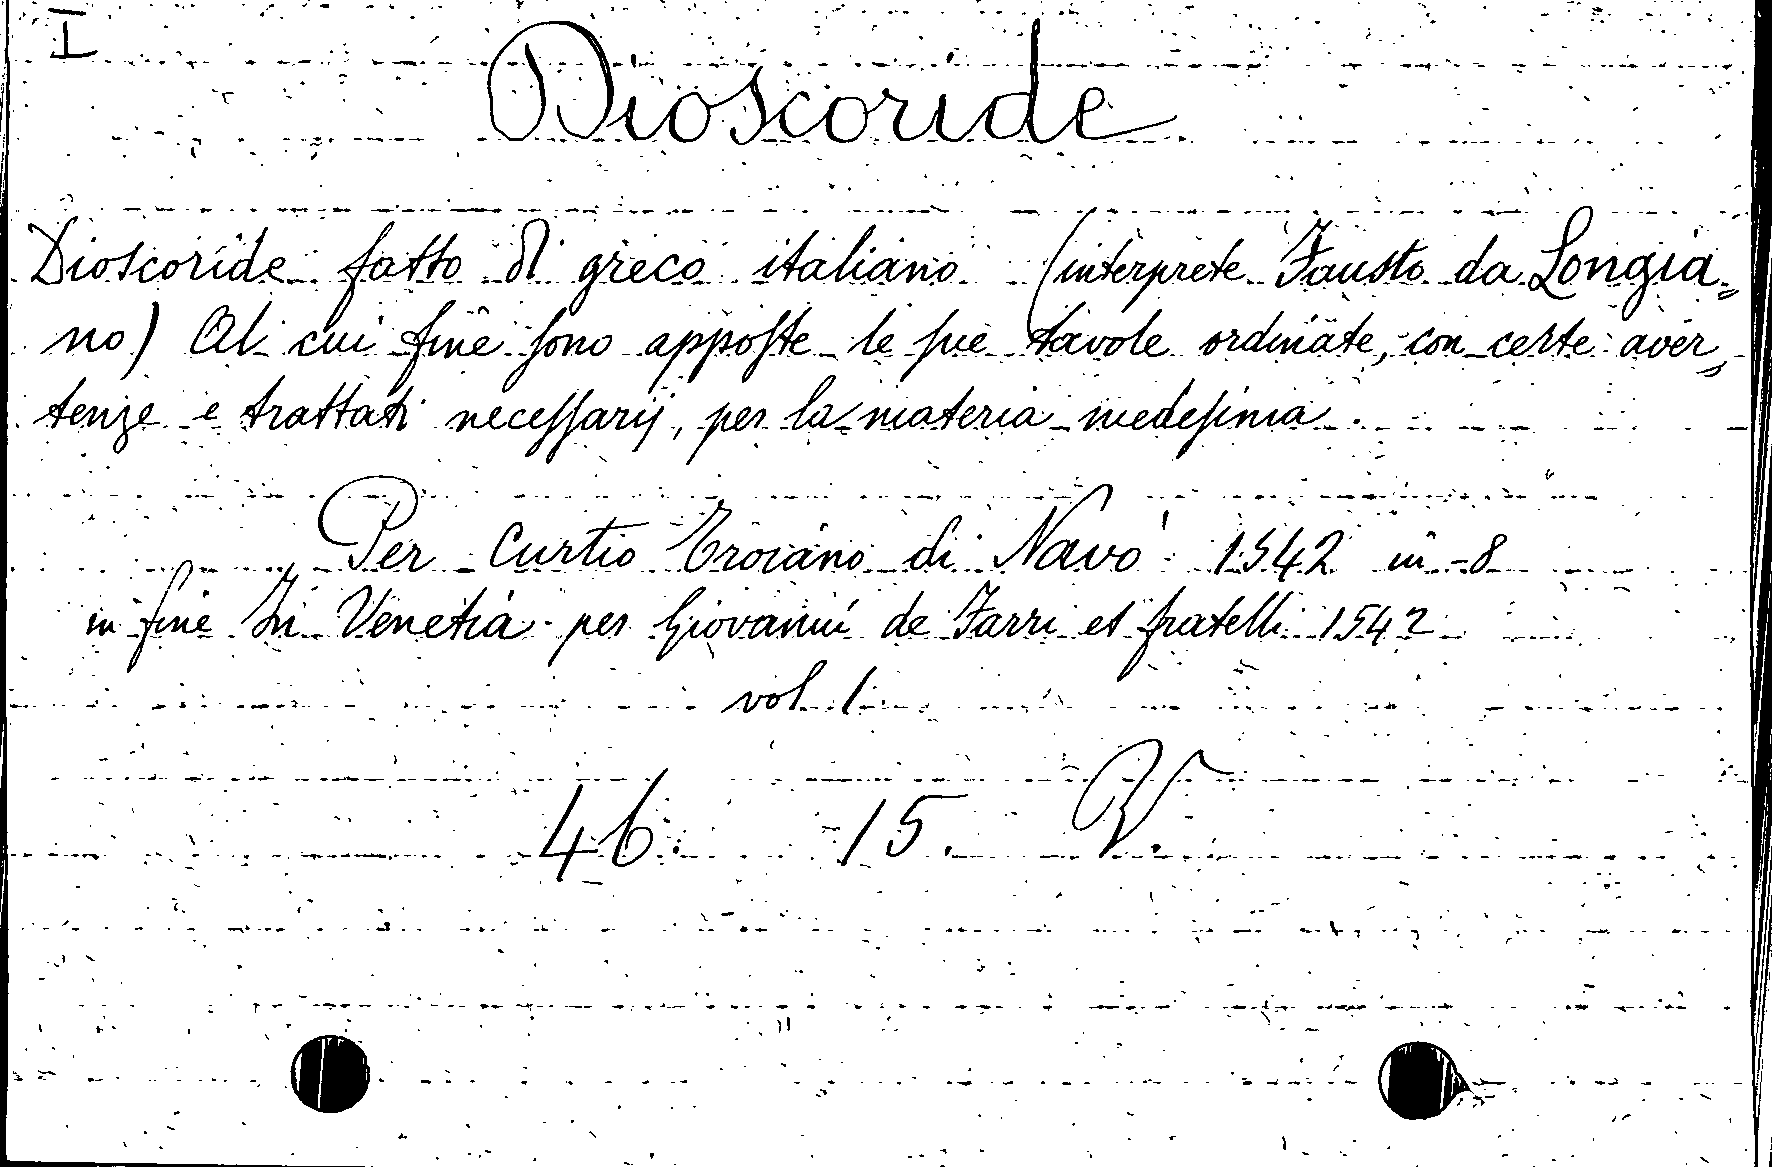 I
Dioscoride
Dioscoride fatto di greco italiano (interprete Fausto da Longia=
no) Al cui fine ſono appoſte le ſue tavole ordinate, con certe aver=
tenze e trattati neceſſarij, per la materia medeſima.
Per Curtio Troiano di Navò 1542 in-8
in fine In Venetia per Giovanni de Farri et fratelli 1542
vol. 1
46. 15. V.